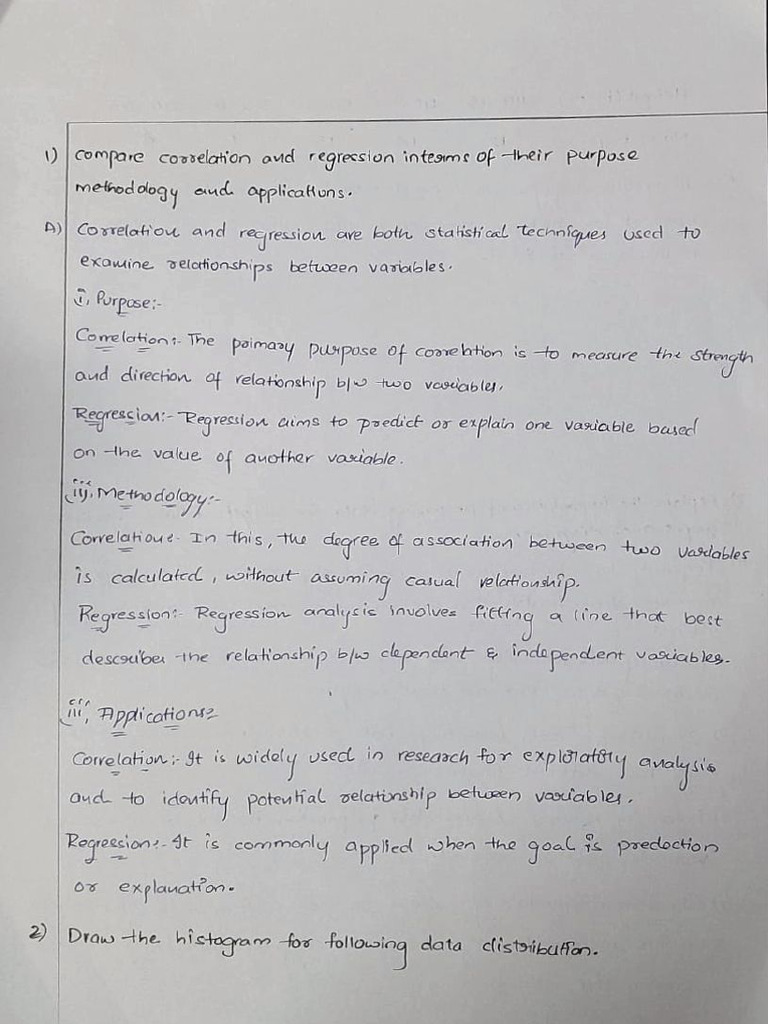 1) compare correlation and regression interms of their purpose
methodology and applications.
A) Correlation and regression are both statistical techniques used to
examine relationships between variables.
i, Purpose:-
Correlation:- The primary purpose of correlation is to measure the strength
and direction of relationship b/w two variables.
Regression:- Regression aims to predict or explain one variable based
on the value of another variable.
ii, Methodology:-
Correlation:- In this, the degree of association between two variables
is calculated, without assuming casual relationship.
Regression:- Regression analysis involves fitting a line that best
describes the relationship b/w dependent & independent variables.
iii, Applications:-
Correlation:- It is widely used in research for exploratory analysis
and to identify potential relationship between variables.
Regression:- It is commonly applied when the goal is predoction
or explanation.
2) Draw the histogram for following data distribution.